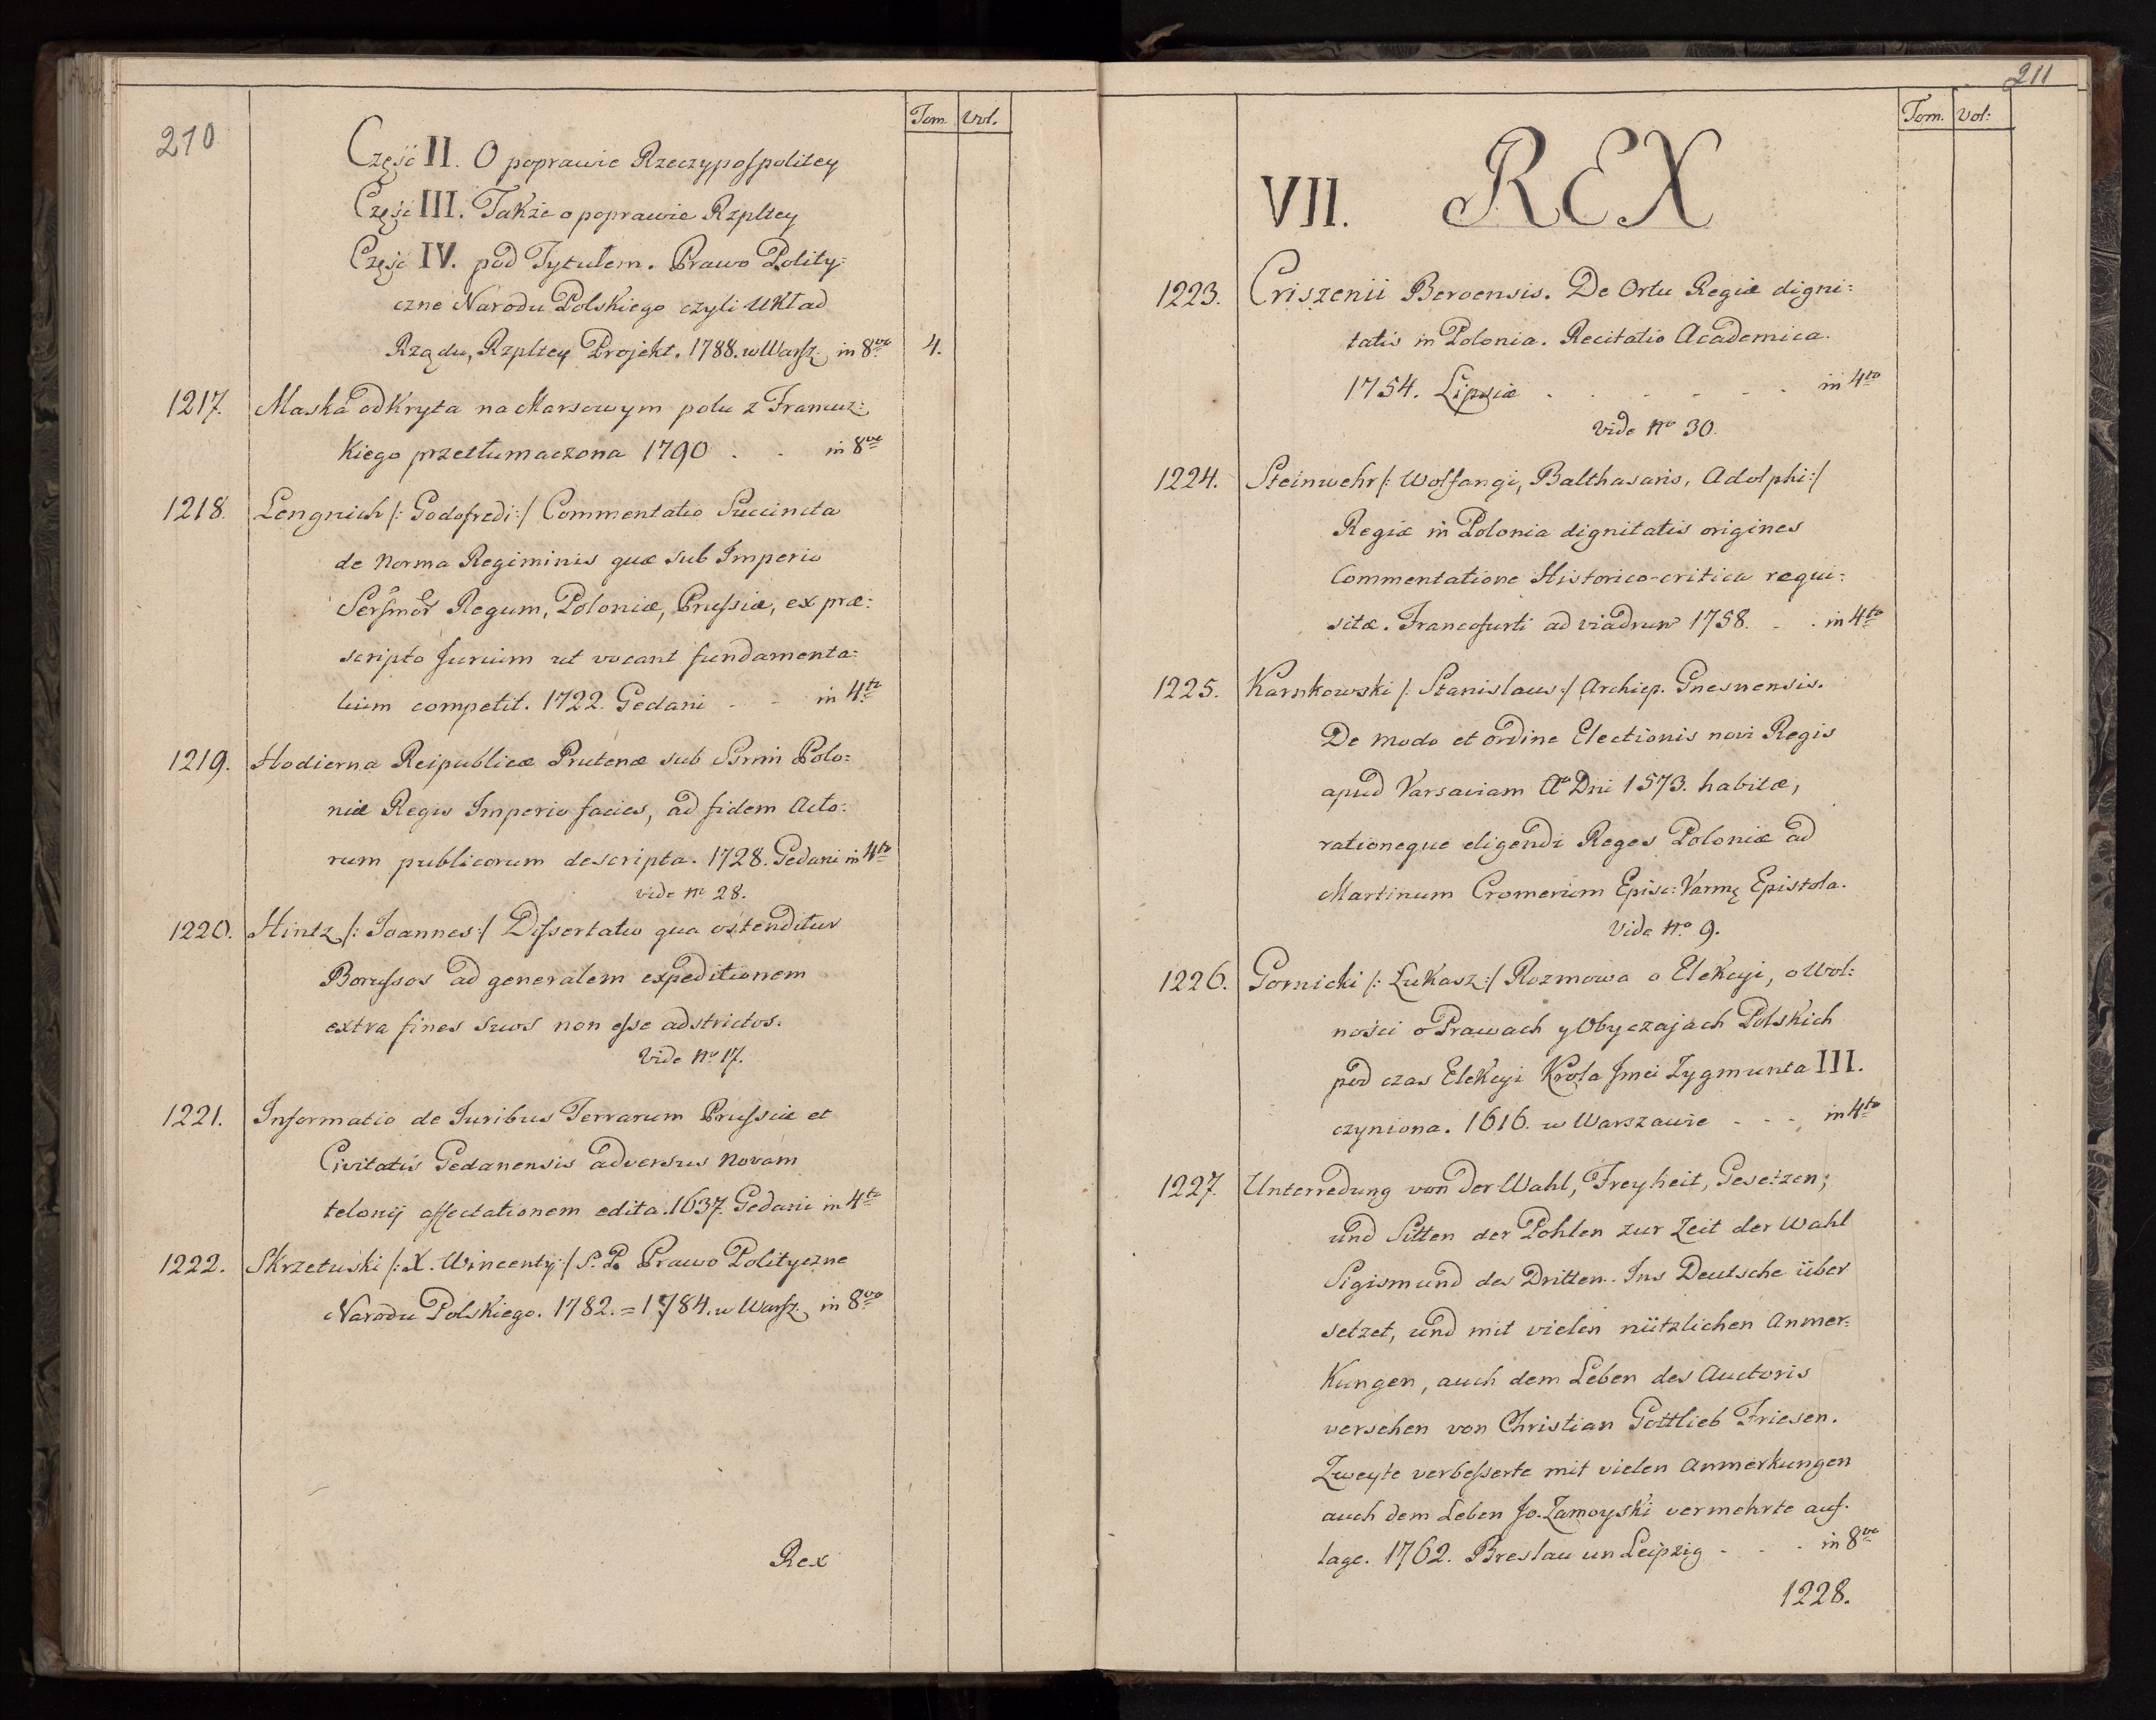 210
Tom. Vol.
Część II. O poprawie Rzeczypospolitey
Część III. Także o poprawie Rzpltey
Część IV. pod Tytułem. Prawo Polity:
czne Narodu Polskiego czyli Układ
Rządu, Rzpltey Projekt. 1788. w Warsz. in 8vo 4.
1217. Maska odkryta na Marsowym polu z Francuz:
kiego przetłumaczona 1790 . . in 8vo
1218. Lengnich /: Godofredi :/ Commentatio Succincta
de Norma Regiminis quæ sub Imperio
Sersmor Regum, Poloniæ, Prussiæ, ex præ:
scripto Jurium ut vocant fundamenta:
lium competit. 1722. Gedani - - in 4to
1219. Hodierna Reipublicæ Prutenæ sub Ssrmi Polo:
niæ Regis Imperio facies, ad fidem Acto:
rum publicorum descripta. 1728. Gedani in 4to
vide No 28.
1220. Hintz /: Joannes :/ Dissertatio qua ostenditur
Borussos ad generalem expeditionem
extra fines suos non esse adstrictos.
Vide No 17.
1221. Informatio de Juribus Terrarum Prussiæ et
Civitatis Gedanensis adversus novam
telonij affectationem edita. 1637. Gedani in 4to
1222. Skrzetuski /: X. Wincenty :/ S. P. Prawo Polityczne
Narodu Polskiego. 1782. = 1784. w Warsz. in 8vo
Rex
211
Tom. Vol:
VII. REX
1223. Criszenii Beroensis. De Ortu Regiæ digni:
tatis in Polonia. Recitatio Academica.
1754. Lipsiæ . . - - - . in 4to
Vide No 30.
1224. Steinwehr /: Wolfangi, Balthasaris, Adolphi :/
Regiæ in Polonia dignitatis origines
Commentatione Historico-critica requi:
sitæ. Francofurti ad viadrum 1758. . . in 4to
1225. Karnkowski /: Stanislaus :/ Archiep. Gnesnensis.
De modo et ordine Electionis novi Regis
apud Varsaviam Ao Dni 1573. habitæ,
rationeque eligendi Reges Poloniæ ad
Martinum Cromerum Episc: Varmę Epistola.
Vide No 9.
1226. Gornicki /: Łukasz :/ Rozmowa o Elekcyi, o Wol:
ności o Prawach y Obyczajach Polskich
pod czas Elekcyi Krola Jmci Zygmunta III.
czyniona. 1616. w Warszawie - - - in 4to
1227. Unterredung von der Wahl, Freyheit, Gesetzen,
und Sitten der Pohlen zur Zeit der Wahl
Sigismund des Dritten. Ins Deutsche über
setzet, und mit vielen nützlichen Anmer:
kungen, auch dem Leben des Auctoris
versehen von Christian Gottlieb Friesen.
Zweyte verbesserte mit vielen Anmerkungen
auch dem Leben Jo. Zamoyski vermehrte auf.
lage. 1762. Breslau un Leipzig - - - in 8vo
1228.